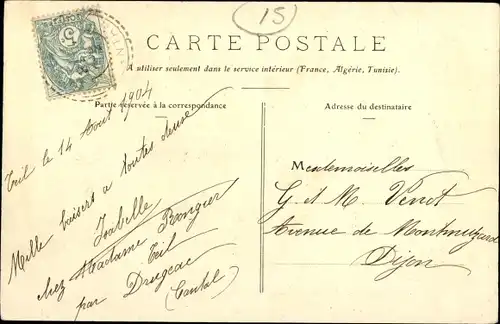 15
CARTE POSTALE
A utiliser seulement dans le service intérieur (France, Algérie, Tunisie).
Partie réservée à la correspondance
Adresse du destinataire
Tril le 14 Aout 1904
Mille baisers a toutes deux
Isabelle
chez Madame Rongier
Tril
par Drugeac
(Cantal)
Mesdemoiselles
G. et M. Venot
Avenue de Montmuzard
Dijon